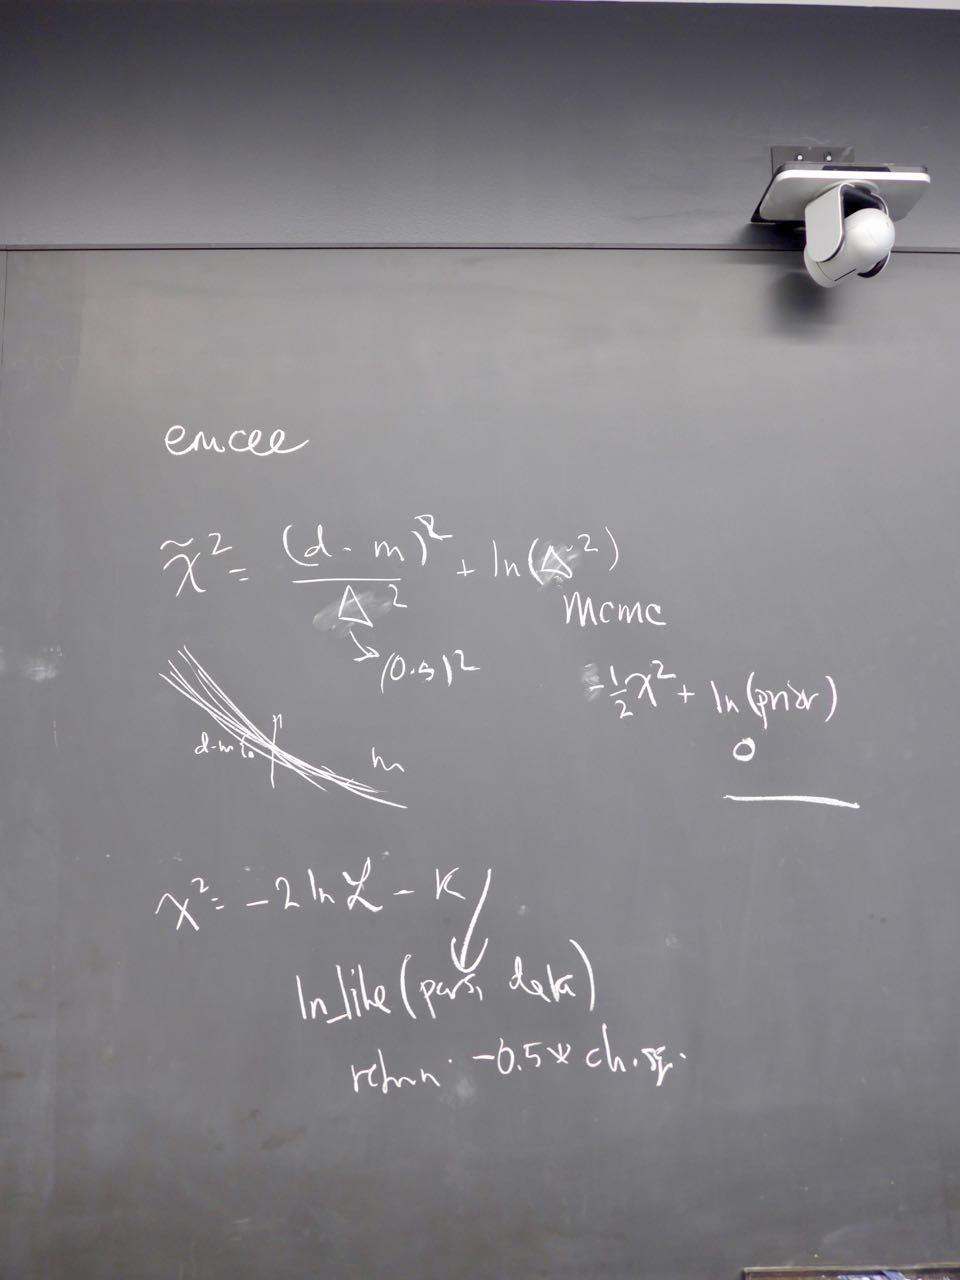 emcee
χ̃² = (d - m)² / Δ² + ln(Δ²)
→ (0.5)²
mcmc
-½χ² + ln(prior)
0
d-m
m
χ² = -2 ln ℒ - K
ln_like(pars, data)
return -0.5 * chisq.